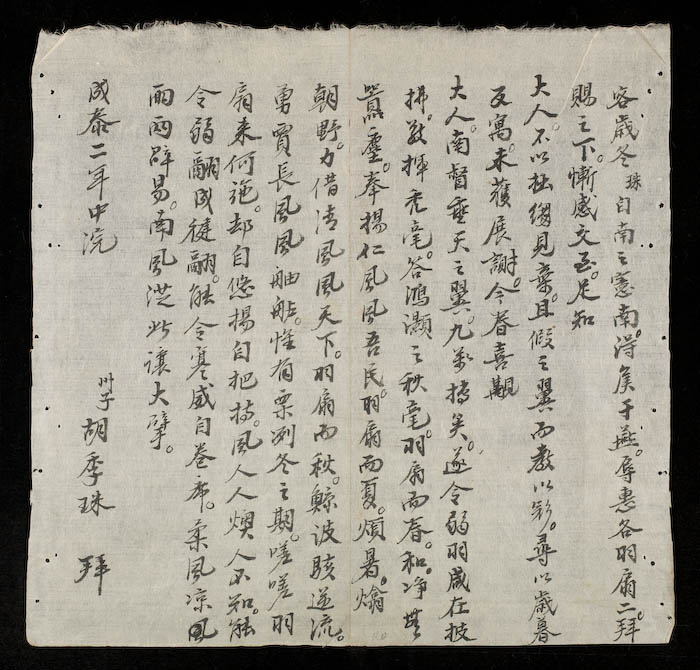 客歲冬珠自南之憲南得矣于燕。辱惠各羽扇二拜
賜之下。慚感交至。足知
大人。不以拙鄒見棄。且假之翼而教以彩。尋以歲暮
互寓。未獲展謝。今春喜覩
大人。南督垂天之翼。九萬摶矣。遂令弱羽咸在披
拂。敢揮禿毫。答鴻灝之秋毫。羽扇而春。和。淨
囂塵。奉揚仁風風吾民。羽扇而夏。煩暑。爚
朝野。力借清風風天下。羽扇而秋。鯨波駭逆流。
勇賈長風風舳舻。惟有栗冽冬之期。嗟嗟羽
扇來何施。却自悠揚自把持。風人人燠人不知。能
令弱翮成健翮。能令寒威自卷席。棄風涼風
兩兩辟易。南風從此讓大擘。
成泰二年中浣
州子 胡季珠 拜